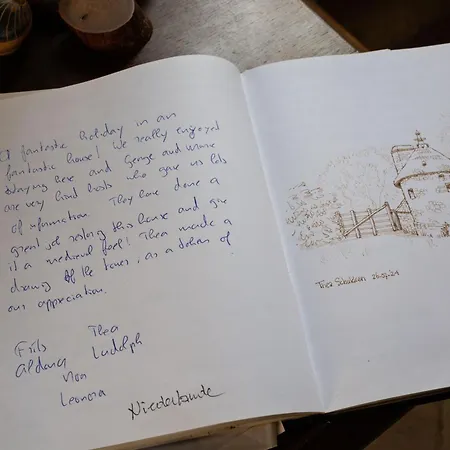 A fantastic holiday in an
fantastic house! We really enjoyed
staying here and George and
are very kind hosts who gave us lots
of information. They have done a
great job restoring this house and give
it a medieval feel! Thea made a
drawing of the tower, as a token of
our appreciation.
Frits Thea
Ludolph
Leonora
Niederlande
Thea